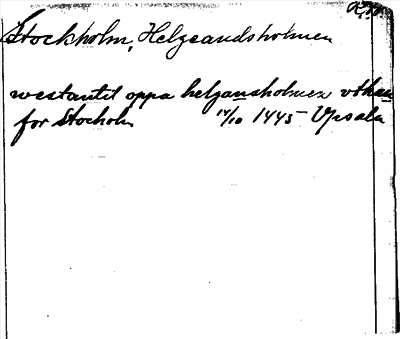 Stockholm, Helgeandsholmen
westantil oppa helgansholmen vthan
for Stocholm 14/10 1445 Upsala